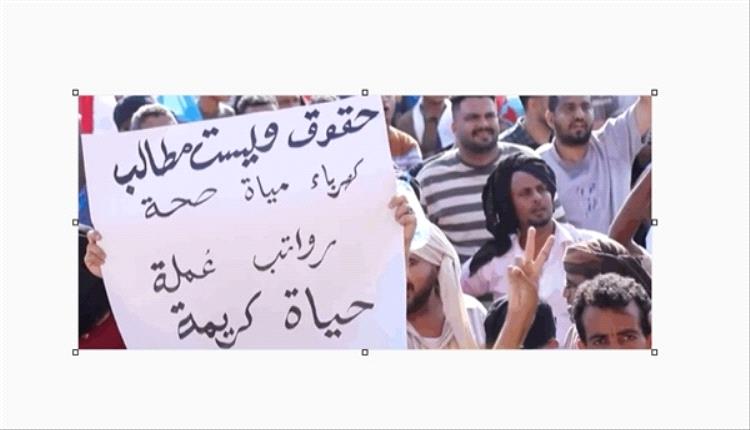 حقوق وليست مطالب
كهرباء مياة صحة
رواتب عُملة
حياة كريمة